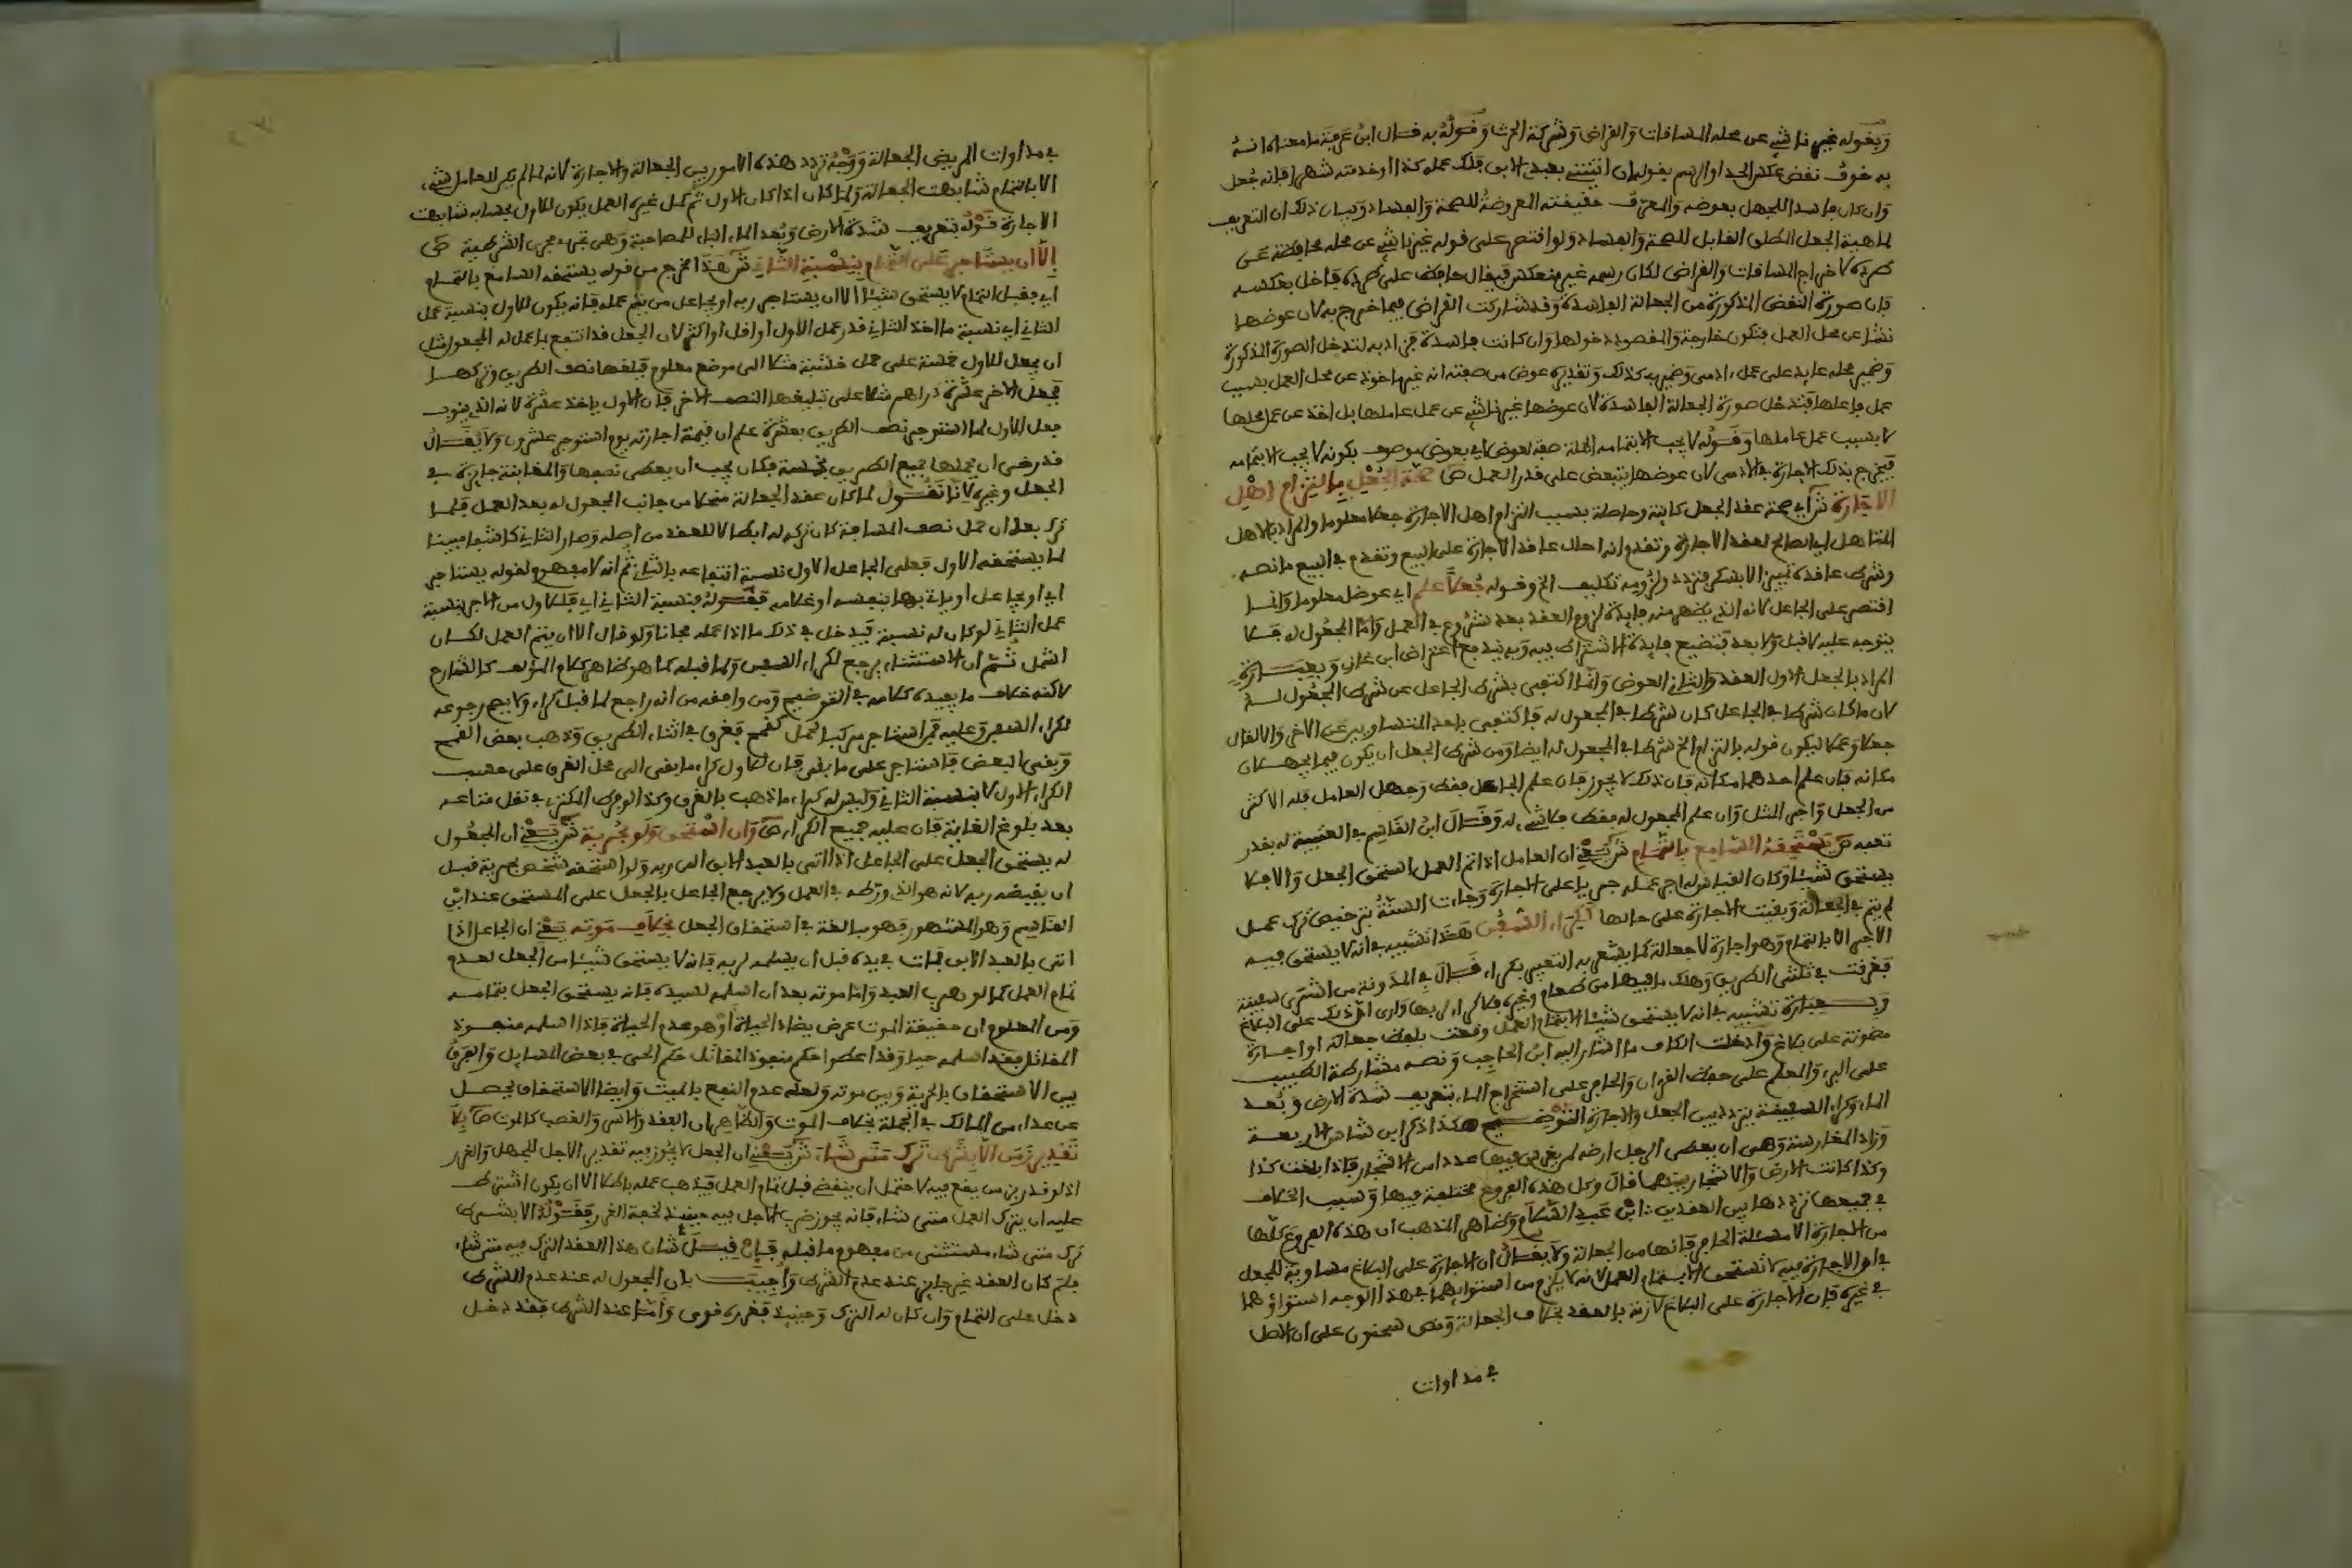 وبقوله غير ناشئ عن محله المساقات والقراض وشركة الحرث وقوله به قال ابن عرفة ما معناه انه
به خوف نقض عكس الحد او الرسم بقوله ان اتيتني بعبدي الابق فلك عمله كذا او خدمته شهرا فانه جعل
وان كان فاسدا للجهل بعوضه والمعرف حقيقته المعروضة للصحة والفساد وبيان ذلك ان التعريف
لماهية الجعل المطلق القابل للصحة والفساد ولو اقتصر على قوله غير ناشئ عن محله محافظة على
طرده لاخراج المساقات والقراض لكان رسمه غير منعكس فيقال حافظ على طرده فاخل بعكسه
فان صورة النقض المذكورة من الجعالة الفاسدة وقد شاركت القراض فيما خرج به لان عوضها
نشا عن محل العمل فتكون خارجة والمقصود دخولها وان كانت فاسدة فزاد به لتدخل الصورة المذكورة
وضمير محله عايد على عمل ادمي وضمير به كذلك وتقديره عوض من صفته انه غير ماخوذ عن محل العمل بسبب
عمل فاعلها فتدخل صورة الجعالة الفاسدة لان عوضها غير ناشئ عن عمل عاملها بل اخذ عن عمل محلها
لا بسبب عمل عاملها وقوله لا يجب الا بتمامه الجملة صفة لعوض اي بعوض موصوف بكونه لا يجب الا بتمامه
فيخرج بذلك الاجارة في الادمي لان عوضها يتبعض على قدر العمل ص صحة الجعل بالتزام اهل
الاجارة ش اي صحة عقد الجعل كاينة وحاصلة بسبب التزام اهل الاجارة جعلا معلوما والمراد بالاهل
المتاهل اي الصالح لعقد الاجارة وتقدم انه احال عاقد الاجارة على البيع وتقدم في البيع ما نصه
وشرط عاقده تمييز الا بسكر فتردد ولزومه تكليف الخ وقوله جعلا علم اي عوضا معلوما وانما
اقتصر على الجاعل لانه الذي يظهر منه فايدة لزوم العقد بعد شروع في العمل واما المجعول له فلا
يتوجه عليه لا قبل ولا بعد فتتضح فايدة الاشتراط فيه وبه يندفع اعتراض ابن غازي وبعبارة
المراد بالجعل الاول العقد والثاني العوض وانما اكتفى بشرط الجاعل عن شرط المجعول له
لان ما كان شرطا في الجاعل كان شرطا في المجعول له فاكتفى باحد المتساويين عن الاخر والا لقال
جعلا وعملا ليكون قوله بالتزام الخ شرطا في المجعول له ايضا ومن شرط الجعل ان يكون فيما يجهلان
مكانه فان علم احدهما مكانه فان ذلك لا يجوز فان علم الجاعل فقط وجهل العامل فله الاكثر
من الجعل واجر المثل وان علم المجعول له فقط فلا شيء له وقال ابن القاسم في العتبية له بقدر
تعبه ص يستحقه السامع بالتمام ش يعني ان العامل اذا تم العمل استحق الجعل والا فلا
يستحق شيئا وكان القياس له اجر عمله جريا على الاجارة وجاءت السنة بترخيص ترك عمل
لم يتم في الجعالة وبقيت الاجارة على حالها ككراء السفن هذا تشبيه في انه لا يستحق فيه
الاجر الا بالتمام وهو اجارة لا جعالة كما يشعر به التعبير بكراء قال في المدونة من اكترى سفينة
فغرقت في ثلثي الطريق وهلك ما فيها من طعام وغيره فلا كراء لربها وارى ان ذلك على البلاغ
وبعبارة تشبيه في انه لا يستحق شيئا الا بتمام العمل وقعت بلفظ جعالة او اجارة
مضمونة على بلاغ وادخلت الكاف ما اشار اليه ابن الحاجب ونصه مشارطة الطبيب
على البرء والمعلم على حفظ القرءان والحافر على استخراج الماء بتعريف شدة الارض وبعد
الماء وكراء السفينة يتردد بين الجعل والاجارة التوضيح هكذا ذكر ابن شاس الاربعة
وزاد المغارسة وهي ان يعطي الرجل ارضه لمن يغرس فيها عددا من الاشجار فاذا بلغت كذا
وكذا كانت الارض والاشجار بينهما قال وكل هذه الفروع مختلفة فيها وسبب الخلاف
في جميعها ترددها بين العقدين ابن عبد السلام وظاهر المذهب ان هذه الفروع كلها
من الاجارة الا مسئلة الحافر فانها من الجعالة ولا يقال ان الاجارة على البلاغ مساوية للجعل
في ان الاجارة فيه لا تستحق الا بتمام العمل لانه لا يلزم من استوائهما في هذا الوجه استواؤهما
في غيره فان الاجارة على البلاغ لازمة بالعقد بخلاف الجعالة ونص سحنون على ان الاصل
في مداوات
في مداوات المريض الجعالة ووجه تردد هذه الامور بين الجعالة والاجارة لانه لما لم يكن للعامل شيء
الا بالتمام شابهت الجعالة ولما كان اذا كان الاول ثم كمل غيره العمل يكون للاول بحسابه شابهت
الاجارة قوله بتعريف شدة الارض وبعد الماء الباء للمصاحبة وهي تجري مجرى الشرطية ص
الا ان يستاجر على التمام فبنسبة الثاني ش هذا مخرج من قوله يستحقه السامع بالتمام
اي فقبل التمام لا يستحق شيئا الا ان يستاجر ربه او يجاعل من يتم عمله فانه يكون للاول بنسبة عمل
الثاني اي نسبة ما اخذ الثاني قدر عمل الاول او اقل او اكثر لان الجعل قد انتفع بما عمل له المجعول مثل
ان يجعل للاول خمسة على حمل خشبة مثلا الى موضع معلوم فبلغها نصف الطريق وتركها
فجعل الاخر عشرة دراهم مثلا على تبليغها النصف الاخر فان الاول ياخذ عشرة لانه الذي ينوب
جعل الاول لما استوجر نصف الطريق بعشرة علم ان قيمة اجارته يوم استوجر عشرون ولا يقال
قد رضي ان يحملها جميع الطريق بخمسة فكان يجب ان يعطى نصفها والمغابنة جارية في
الجعل وغيره لانا نقول لما كان عقد الجعالة منحلا من جانب المجعول له بعد العمل فلما
ترك بعد ان حمل نصف المسافة كان تركه له ابطالا للعقد من اصله وصار الثاني كاشفا مبينا
لما يستحقه الاول فعلى الجاعل الاول نسبة انتفاعه بالثاني ثم انه لا مفهوم لقوله يستاجر
اي او يجاعل او ياتي بها بنفسه او غلامه فقوله فبنسبة الثاني اي فللاول من الاجر بنسبة
عمل الثاني لو كان له نسبة فيدخل في ذلك ما اذا عمله مجانا ولو قال الا ان يتم العمل لكان
اشمل ثم ان الاستثناء يرجع لكراء السفن ولما قبله كما هو ظاهر كلام المؤلف كالشارح
لاكنه خلاف ما يفيده كلامه في التوضيح ومن وافقه من انه راجع لما قبل كراء ولا يصح رجوعه
لكراء السفن وعليه فمن استاجر مركبا لحمل كقمح فغرق في اثناء الطريق وذهب بعض القمح
وبقي البعض فاستاجر على ما بقي فان للاول كراء ما بقي الى محل الغرق على حسب
الكراء الاول لا بنسبة الثاني وليس له كراء ما ذهب بالغرق وكذا لو فرط المكتري في نقل متاعه
بعد بلوغ الغاية فان عليه جميع الكراء ص وان استحق ولو بحرية ش يعني ان المجعول
له يستحق الجعل على الجاعل اذا اتى بالعبد الابق الى ربه ولو استحقه شخص بحرية قبل
ان يقبضه ربه لانه هو الذي ورطه في العمل ولا يرجع الجاعل بالجعل على المستحق عند ابن
القاسم وهو المشهور فهو مبالغة في استحقاق الجعل بخلاف موته يعني ان الجاعل اذا
اتى بالعبد الابق فمات في يده قبل ان يسلمه لربه فانه لا يستحق شيئا من الجعل لعدم
تمام العمل كما لو هرب العبد واما موته بعد ان اسلمه لسيده فانه يستحق الجعل بتمامه
ومن المعلوم ان حقيقة الموت عرض يضاد الحياة او هو عدم الحياة فاذا اسلمه منفوذ
المقاتل فقد اسلمه حيا وقد اعطوا حكم منفوذ المقاتل حكم الحي في بعض المسايل والفرق
بين الاستحقاق بالحرية وبين موته ولعله عدم النفع بالميت وايضا الاستحقاق يحصل
عن عداء من المالك في الجملة بخلاف الموت والظاهر ان الفقد والاسر والغصب كالموت ص بلا
تقدير زمن الا بشرط ترك متى شاء ش يعني ان الجعل لا يجوز فيه تقدير الاجل للجهل والغرر
اذ لو قدر بزمن يقع فيه لاحتمل ان ينقضي قبل تمام العمل فيذهب عمله باطلا الا ان يكون اشترط
عليه ان يترك العمل متى شاء فانه يجوز ضرب الاجل فيه حينئذ لخفة الغرر فقوله الا بشرط
ترك متى شاء مستثنى من مفهوم ما قبله فان قيل شان هذا العقد الترك فيه متى شاء
فلم كان العقد غير جايز عند عدم الشرط واجيب بان المجعول له عند عدم الشرط
دخل على التمام وان كان له الترك وحينئذ فغرره قوي واما عند الشرط فقد دخل